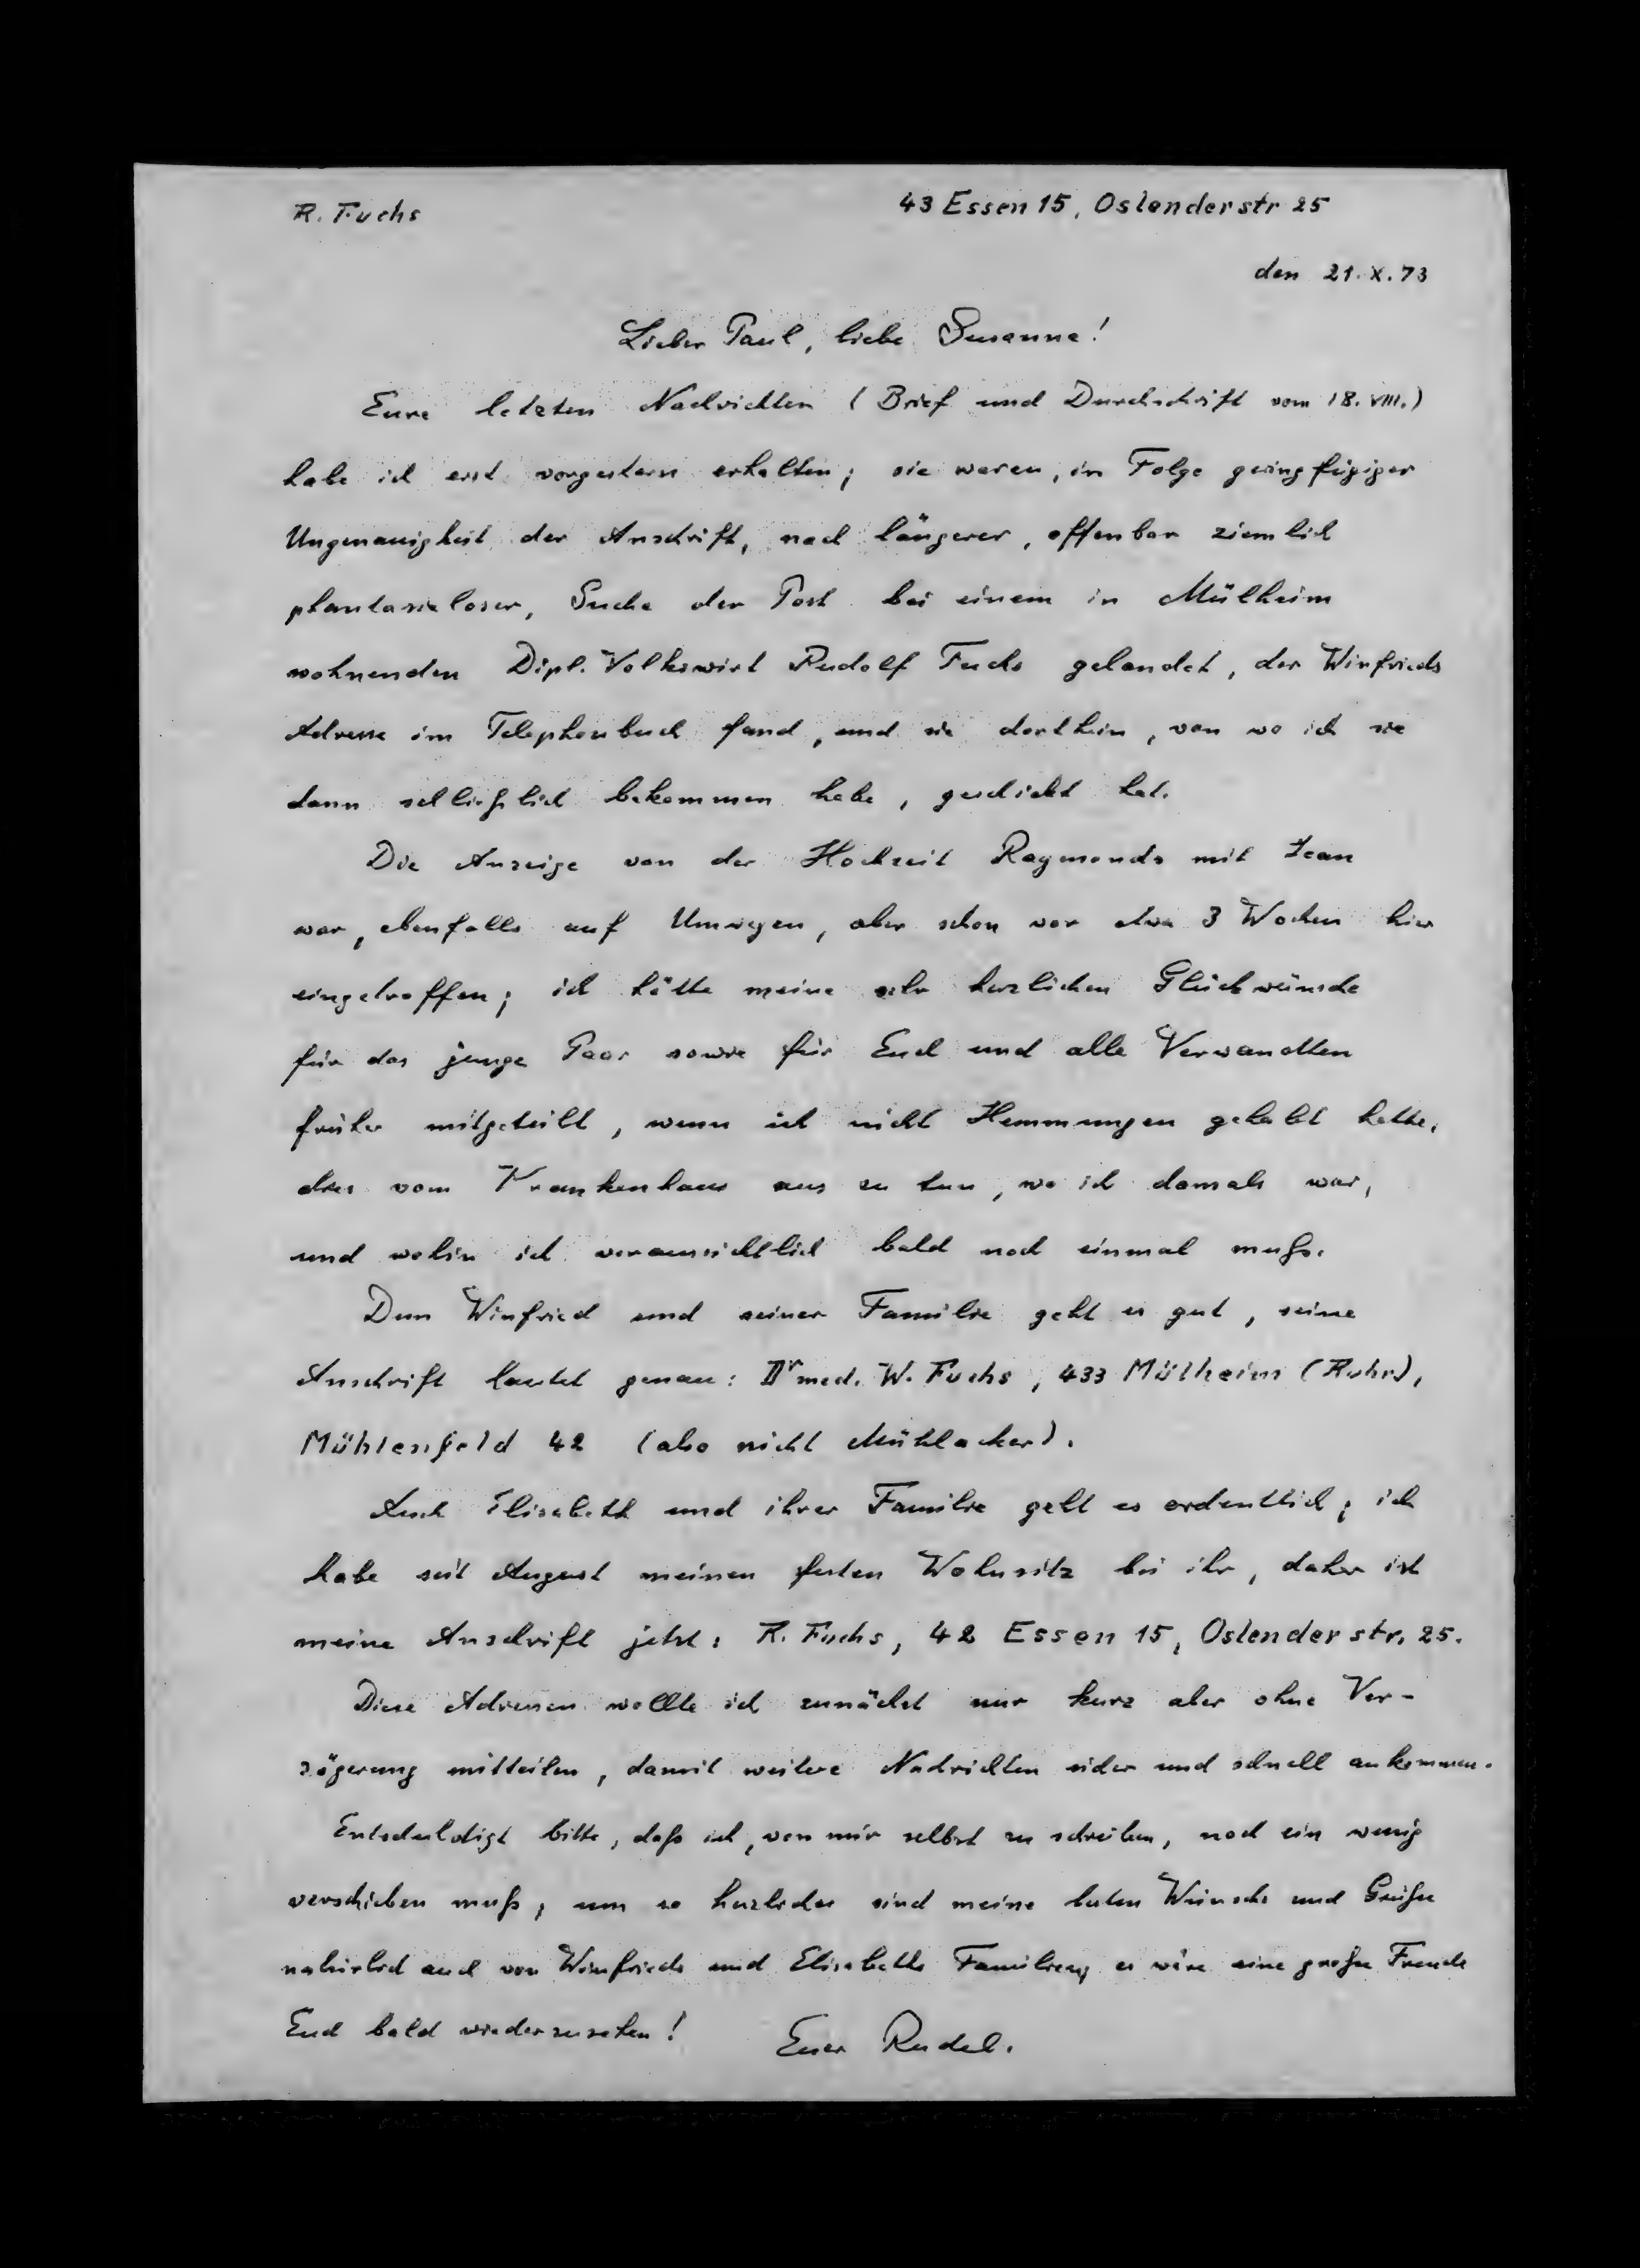 R. Fuchs
43 Essen 15, Ostenderstr 25
den 21.X.73
Lieber Paul, liebe Susanne!
Eure letzten Nachrichten (Brief und Durchschrift vom 18.VIII.)
habe ich erst vorgestern erhalten; sie waren, in Folge geringfügiger
Ungenauigkeit der Anschrift, nach längerer, offenbar ziemlich
phantasieloser, Suche der Post bei einem in Mülheim
wohnenden Dipl. Volkswirt Rudolf Fuchs gelandet, der Winfrieds
Adresse im Telephonbuch fand, und sie dorthin, von wo ich sie
dann schließlich bekommen habe, geschickt hat.
Die Anzeige von der Hochzeit Raymonds mit Jean
war, ebenfalls auf Umwegen, aber schon vor etwa 3 Wochen hier
eingetroffen; ich hätte meine sehr herzlichen Glückwünsche
für das junge Paar sowie für Euch und alle Verwandten
früher mitgeteilt, wenn ich nicht Hemmungen gehabt hätte,
dies vom Krankenhaus aus zu tun, wo ich damals war,
und wohin ich voraussichtlich bald noch einmal muß.
Dem Winfried und seiner Familie geht es gut, seine
Anschrift lautet genau: Dr med. W. Fuchs, 433 Mülheim (Ruhr),
Mühlenfeld 42 (also nicht Mühlacker).
Auch Elisabeth und ihrer Familie geht es ordentlich; ich
habe seit August meinen festen Wohnsitz bei ihr, daher ist
meine Anschrift jetzt: R. Fuchs, 42 Essen 15, Ostenderstr. 25.
Diese Adressen wollte ich zunächst nur kurz aber ohne Ver-
zögerung mitteilen, damit weitere Nachrichten sicher und schnell ankommen.
Entschuldigt bitte, daß ich, von mir selbst zu schreiben, noch ein wenig
verschieben muß; um so herzlicher sind meine besten Wünsche und Grüße
natürlich auch von Winfrieds und Elisabeths Familien; es wäre eine große Freude
Euch bald wiederzusehen!
Euer Rudel.